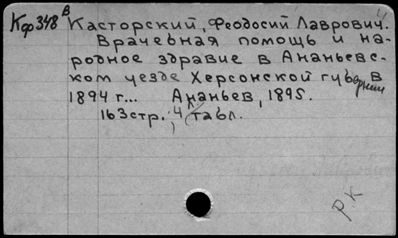 Кф348 в Касторский, Феодосий Лаврович.
Врачебная помощь и на-
родное здравие в Ананьевс-
ком уезде Херсонской губернии в
1894 г... Ананьев, 1895.
163 стр., 4 табл.
РК